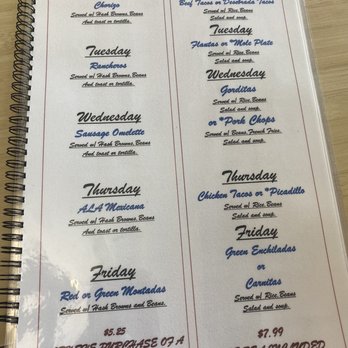 Chorizo
Served w/ Hash Browns,Beans
And toast or tortilla.
Tuesday
Rancheros
Served w/ Hash Browns,Beans
And toast or tortilla.
Wednesday
Sausage Omelette
Served w/ Hash Browns,Beans
And toast or tortilla.
Thursday
ALA Mexicana
Served w/ Hash Browns,Beans
And toast or tortilla.
Friday
Red or Green Montadas
Served w/ Hash Browns and Beans.
$5.25
PURCHASE OF A
Beef Tacos or Deshebrada Tacos
Served w/ Rice,Beans
Salad and soup.
Tuesday
Flautas or *Mole Plate
Served w/ Rice,Beans
Salad and soup.
Wednesday
Gorditas
Served w/ Rice,Beans
Salad and soup.
or *Pork Chops
Served w/ Beans,French Fries
Salad and soup.
Thursday
Chicken Tacos or *Picadillo
Served w/ Rice,Beans
Salad and soup.
Friday
Green Enchiladas
or
Carnitas
Served w/ Rice,Beans
Salad and soup.
$7.99